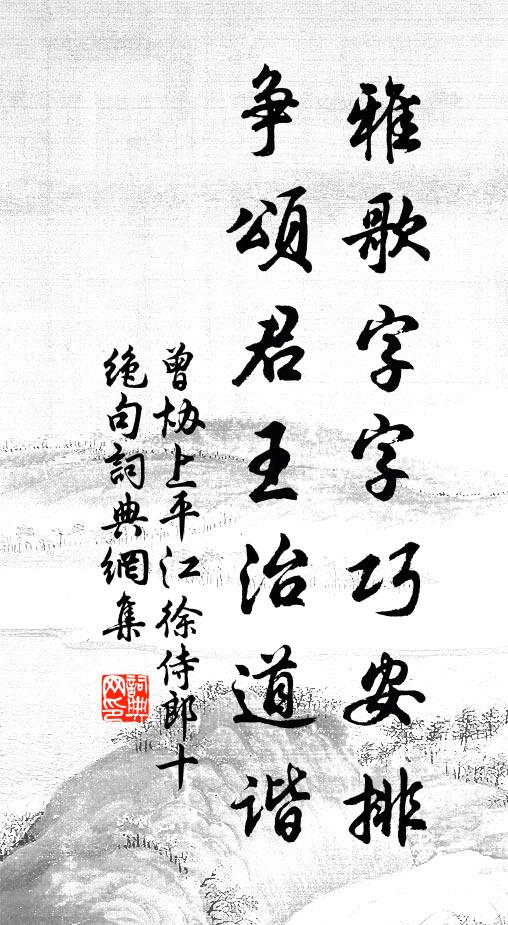 雅歌字字巧安排
争頌君王治道谐
曾协上平江徐侍郎十
绝句詞典網集
詞典
网印